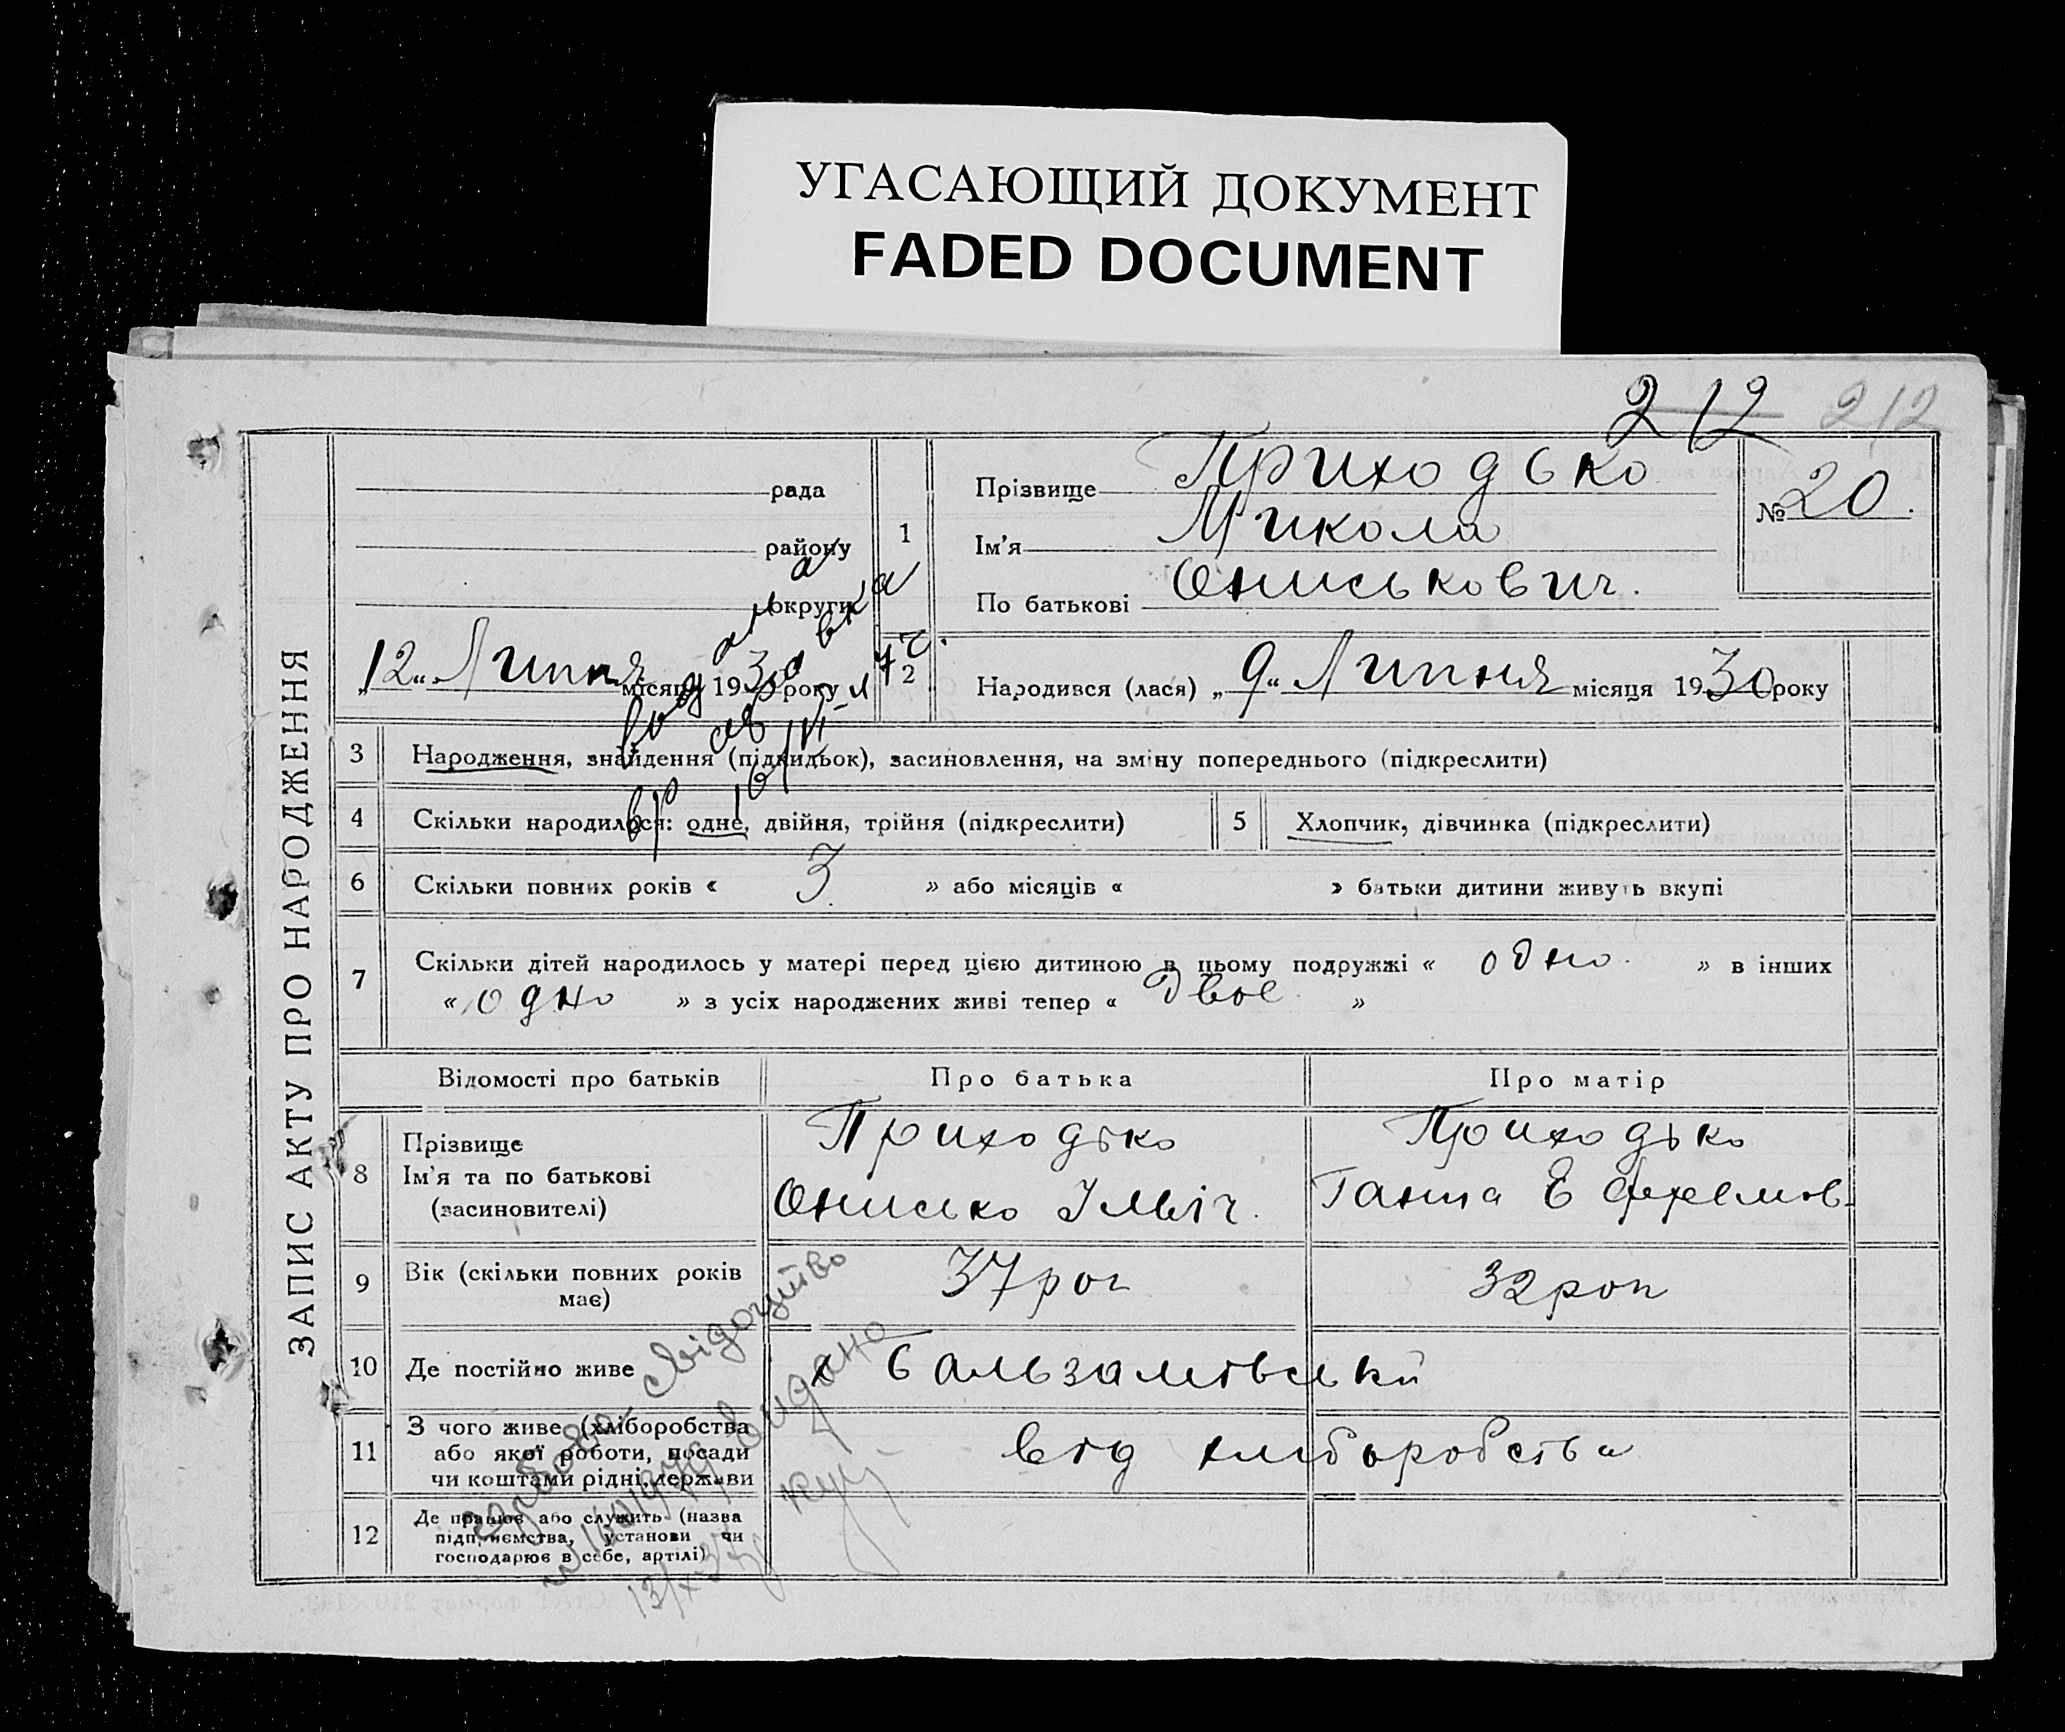 УГАСАЮЩИЙ ДОКУМЕНТ
FADED DOCUMENT
212 212
ЗАПИС АКТУ ПРО НАРОДЖЕННЯ
рада
району
округи
„12“ Липня місяця 1930 року
1
Прізвище Приходько
Ім'я Микола
По батькові Ониськович.
№ 20.
2
Народився (лася) „9“ Липня місяця 1930 року
3 Народження, знайдення (підкидьок), засиновлення, на зміну попереднього (підкреслити)
4 Скільки народилося: одне, двійня, трійня (підкреслити)
5 Хлопчик, дівчинка (підкреслити)
6 Скільки повних років « 3 » або місяців « » батьки дитини живуть вкупі
7 Скільки дітей народилось у матері перед цією дитиною в цьому подружжі « одно » в інших
« одно » з усіх народжених живі тепер « двое »
Відомості про батьків Про батька Про матір
8 Прізвище
Ім'я та по батькові
(засиновителі)
Приходько
Онисько
Приходько
Ганна
9 Вік (скільки повних років
має)
37 рог
32 роп
10 Де постійно живе
11 З чого живе (хліборобства
або якої роботи, посади
чи коштами рідні, держави
від хліборобства
12 Де працює або служить (назва
підприємства, установи чи
господарює в себе, артілі)
свідоцтво
видано